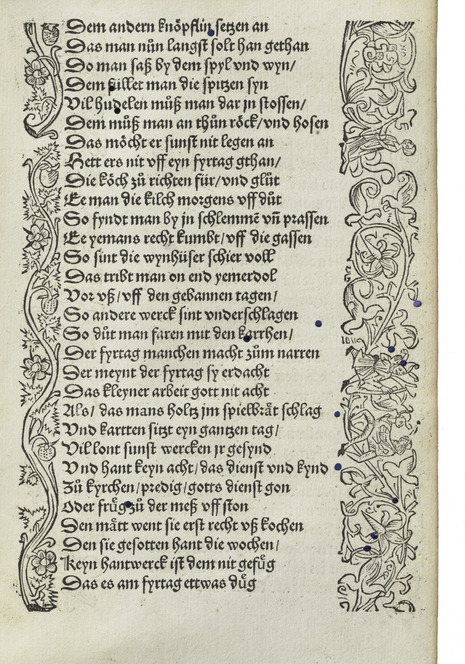 Dem andern knöpflin setzen an
Das man nůn langst solt han gethan
Do man saß by dem spyl vnd wyn/
Dem füllet man die spitzen syn
Vil hudelen můß man dar jn stossen/
Dem můß man an thůn röck/vnd hosen
Das möcht er sunst nit legen an
Hett ers nit vff eyn fyrtag gthan/
Die köch zů richten für/vnd glůt
Ee man die kilch morgens vff důt
So fyndt man by jn schlemmē vñ prassen
Ee yemans recht kumbt/vff die gassen
So sint die wynhüser schier voll
Das tribt man on end yemerdol
Vor vß/vff den gebannen tagen/
So andere werck sint vnderschlagen
So důt man faren mit den karrhen/
Der fyrtag manchen macht zům narren
Der meynt der fyrtag sy erdacht
Das kleyner arbeit gott nit acht
Als/ das mans holtz jm spielbrät schlag
Vnd kartten sitzt eyn gantzen tag/
Vil lont sunst wercken jr gesynd
Vnd hant keyn acht/das dienst vnd kynd
Zů kyrchen/predig/gotts dienst gon
Oder früg zů der meß vff ston
Den mätt went sie erst recht vß kochen
Den sie gesotten hant die wochen/
Keyn hantwerck ist dem nit gefüg
Das es am fyrtag ettwas düg